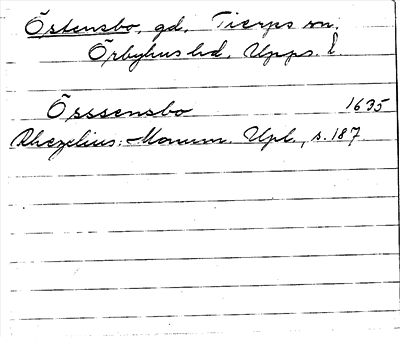 Östensbo, gd, Tierps sn.
Örbyhus hd, Upps. l
Össsensbo 1635
Rhezelius: Monum. Upl., s. 187